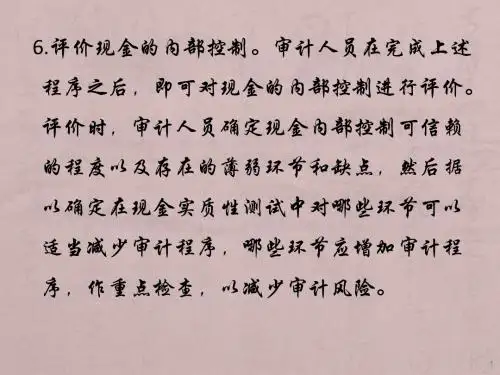 6.评价现金的内部控制。审计人员在完成上述
程序之后，即可对现金的内部控制进行评价。
评价时，审计人员确定现金内部控制可信赖
的程度以及存在的薄弱环节和缺点，然后据
以确定在现金实质性测试中对哪些环节可以
适当减少审计程序，哪些环节应增加审计程
序，作重点检查，以减少审计风险。
1